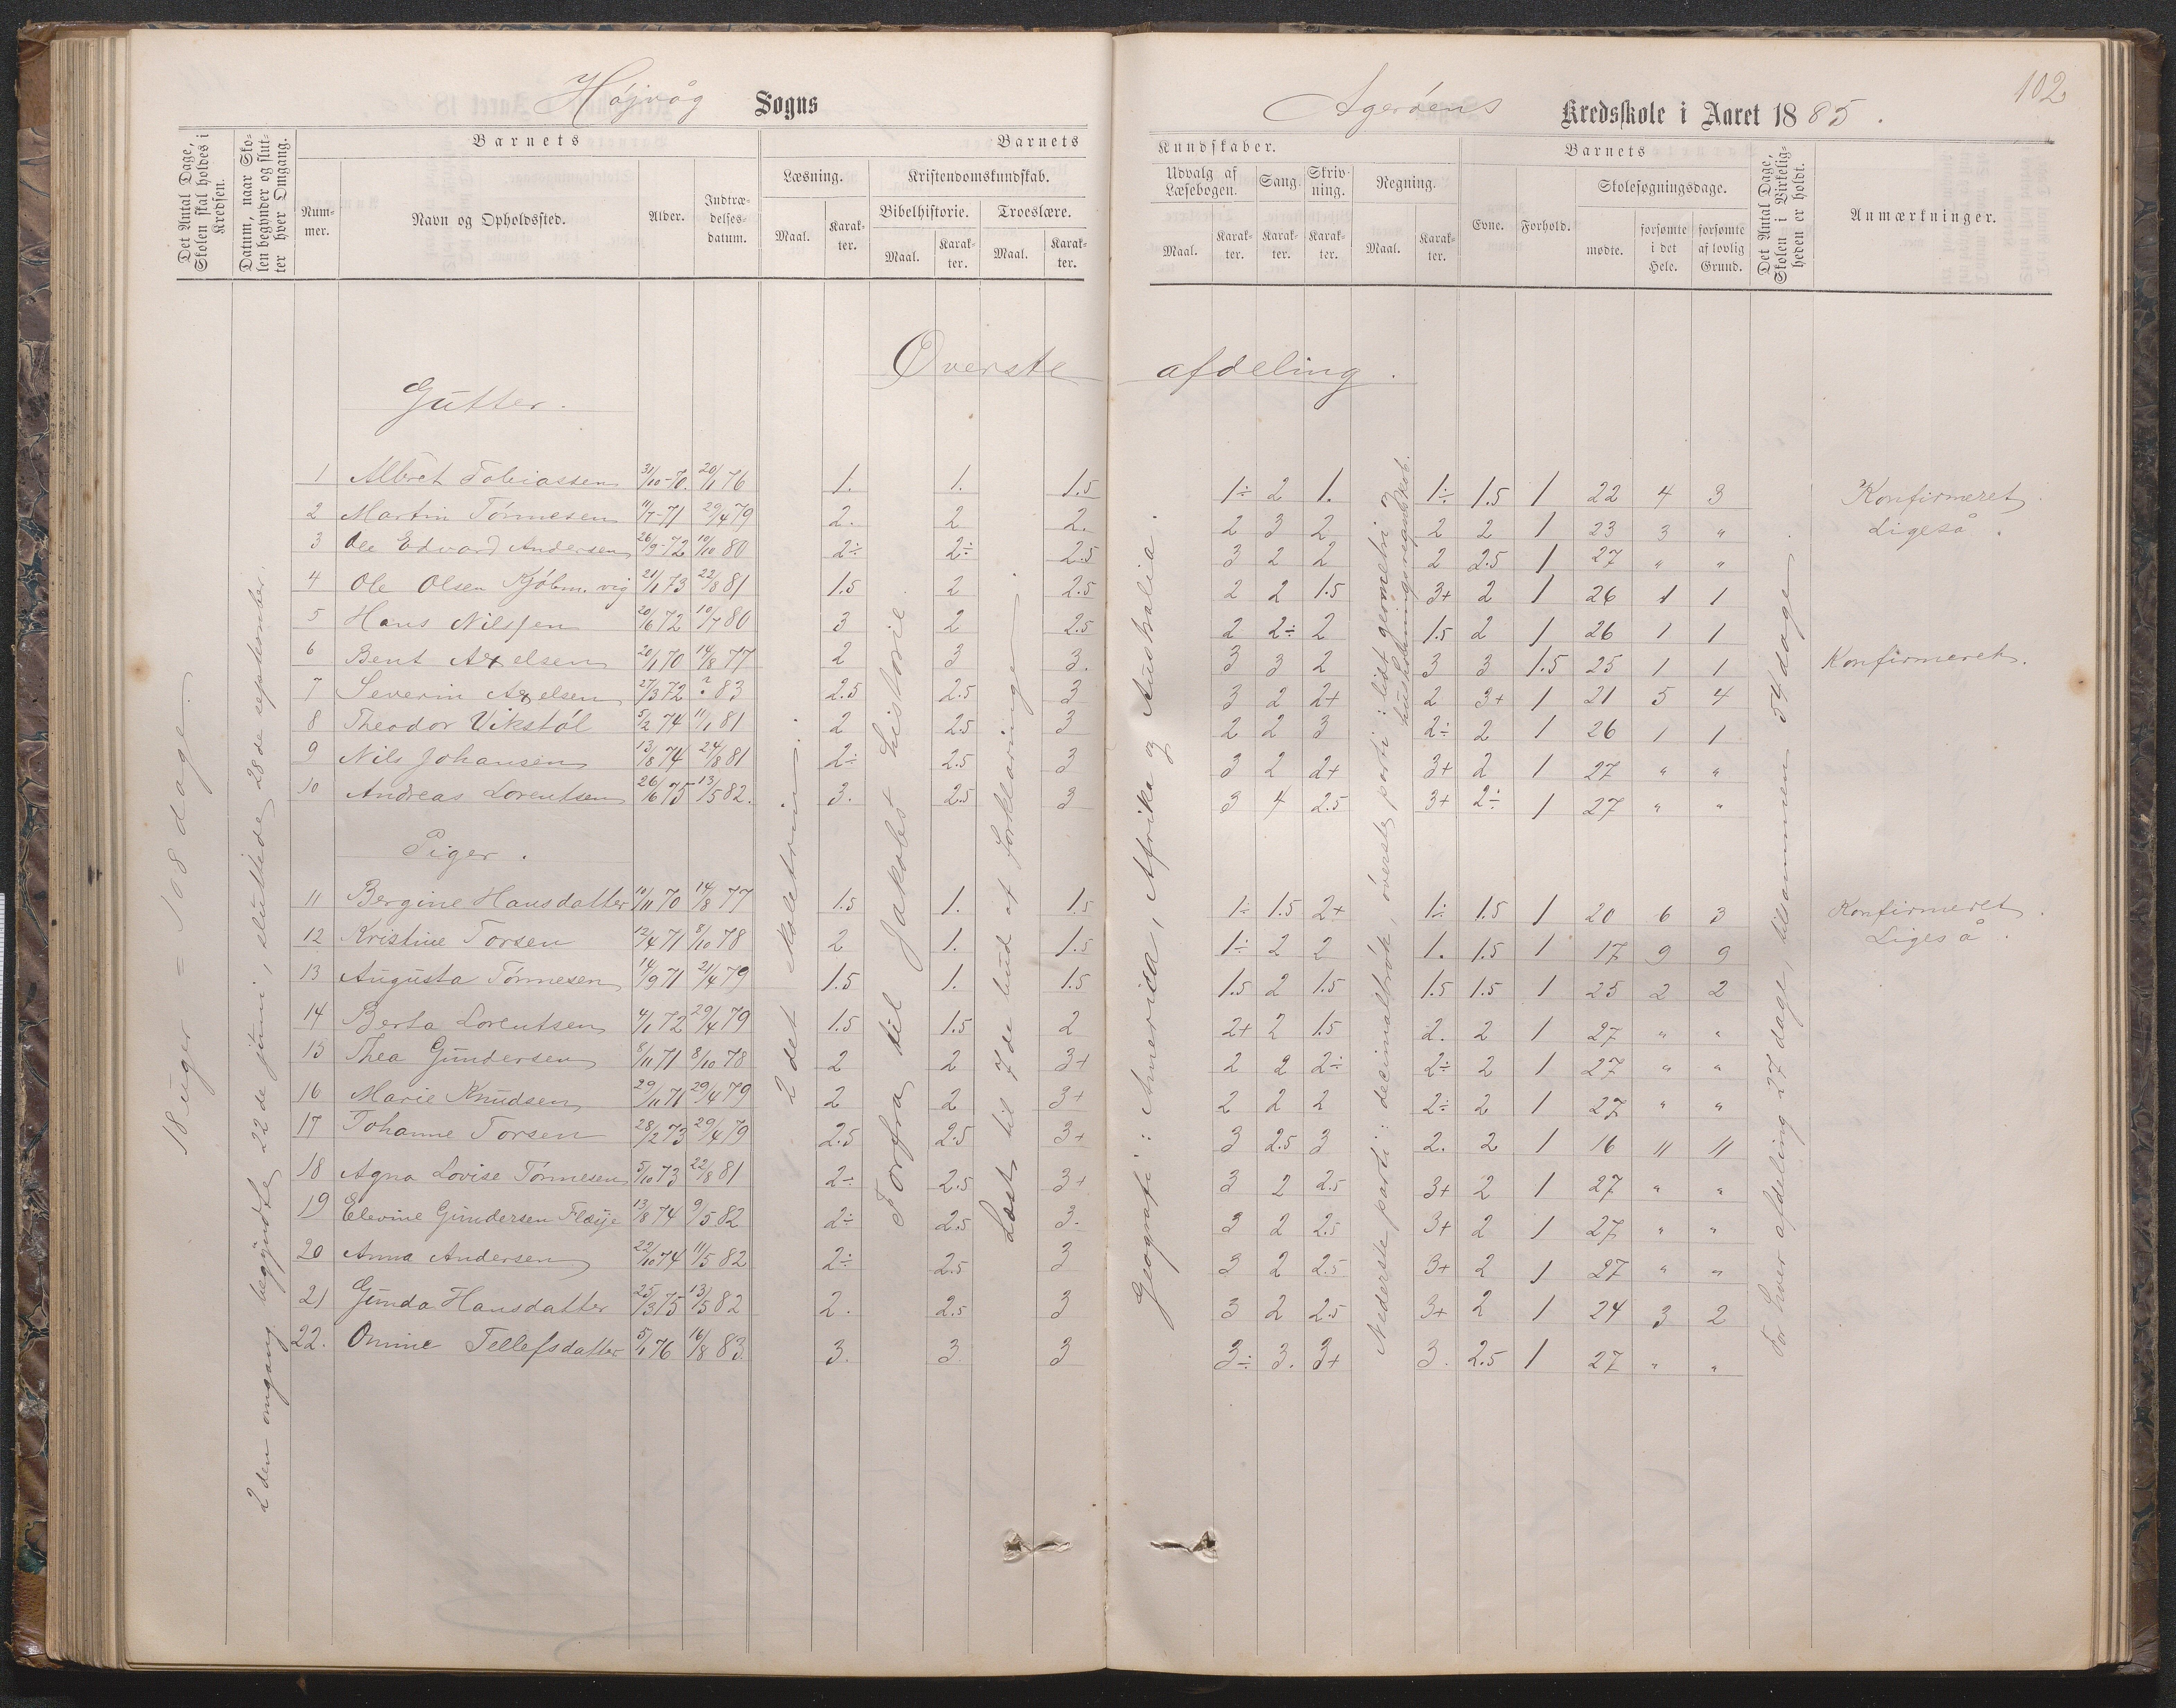 Højvåg Sogns
Agerøens Kredsskole i Aaret 1885.
102
Det Antal Dage, Skolen skal holdes i Kredsen.
Datum, naar Skolen begynder og slutter hver Omgang.
Barnets
Nummer.
Navn og Opholdssted.
Alder.
Indtrædelsesdatum.
Barnets
Læsning.
Maal.
Karakter.
Kristendomskundskab.
Bibelhistorie.
Maal.
Karakter.
Troeslære.
Maal.
Karakter.
Kundskaber.
Udvalg af Læsebogen.
Maal.
Karakter.
Sang.
Karakter.
Skrivning.
Karakter.
Regning.
Maal.
Karakter.
Barnets
Evne.
Forhold.
Skolesøgningsdage.
mødte.
forsømte i det Hele.
forsømte af lovlig Grund.
Det Antal Dage, Skolen i Virkeligheden er holdt.
Anmærkninger.
Øverste afdeling.
Gutter.
1 Albret Tobiassen 31/10-70. 20/11 76 1. 1. 1.5 1÷ 2 1. 1÷ 1.5 1 22 4 3 Konfirmeret.
2 Martin Tønnesen 11/7-71 29/4 79 2. 2 2. 2 3 2 2 2 1 23 3 " Ligeså.
3 Ole Edvard Andersen 26/9-72 10/10 80 2÷ 2÷ 2.5 3 2 2 2 2.5 1 27 " "
4 Ole Olsen Kjøbm.vig 21/1 73 22/8 81 1.5 2 2.5 2 2 1.5 3+ 2 1 26 1 1
5 Hans Nilssen 20/6 72 10/7 80 3 2 2.5 2 2÷ 2 1.5 2 1 26 1 1
6 Bent Axelsen 20/1 70 14/8 77 2 3 3. 3 3 2 3 3 1.5 25 1 1 Konfirmeret.
7 Severin Axelsen 27/3 72 ? 83 2.5 2.5 3 3 2 2+ 2 3+ 1 21 5 4
8 Theodor Vikstøl 5/2 74 11/1 81 2 2.5 3 2 2 3 2÷ 2 1 26 1 1
9 Nils Johansen 13/8 74 24/8 81 2÷ 2.5 3 3 2 2+ 3+ 2 1 27 " "
10 Andreas Lorentsen 26/6 75 13/5 82. 3. 2.5 3 3 4 2.5 3+ 2÷ 1 27 " "
Piger.
11 Bergine Hansdatter 10/11 70 14/8 77 1.5 1. 1.5 1÷ 1.5 2+ 1÷ 1.5 1 20 6 3 Konfirmeret.
12 Kristine Torsen 12/4 71 8/10 78 2 1. 1.5 1÷ 2 2 1. 1.5 1 17 9 9 Ligeså.
13 Augusta Tønnesen 14/9 71 21/4 79 1.5 1. 1.5 1.5 2 1.5 1.5 1.5 1 25 2 2
14 Berta Lorentsen 4/1 72 29/4 79 1.5 1.5 2 2+ 2 1.5 2. 2 1 27 " "
15 Thea Gundersen 8/11 71 8/10 78 2 2 3+ 2 2 2÷ 2÷ 2 1 27 " "
16 Marie Knudsen 29/11 71 29/4 79 2 2 3+ 2 2 2 2÷ 2 1 27 " "
17 Johanne Torsen 28/2 73 29/4 79 2.5 2.5 3+ 3 2.5 3 2. 2 1 16 11 11
18 Agna Lovise Tønnesen 5/10 73 22/8 81 2÷ 2.5 3+ 3 2 2.5 3+ 2 1 27 " "
19 Elevine Gundersen 13/8 74 9/5 82 2÷ 2.5 3. 3 2 2.5 3+ 2 1 27 " "
20 Anna Andersen 22/10 74 11/5 82 2÷ 2.5 3 3 2 2.5 3+ 2 1 27 " "
21 Gunda Hansdatter 25/3 75 13/5 82 2. 2.5 3 3 2 2.5 3+ 2 1 24 3 2
22. Omine Tellefsdatter 5/1 76 16/8 83 3. 3. 3 3÷ 3. 3+ 3. 2.5 1 27 " "
18 uger = 108 dage.
2den omgang begyndte 22de juni, sluttede 28de september.
2det skoletrin.
Forfra til Jakobs historie.
Læst til 7de bud af forklaringe.
Geografi: Amerika, Afrika og Australia.
Nederste parti: decimalbrøk, øverste parti: lidt geometri og husholdningsregnskab.
For hver afdeling 27 dage, tilsammen 54 dage.